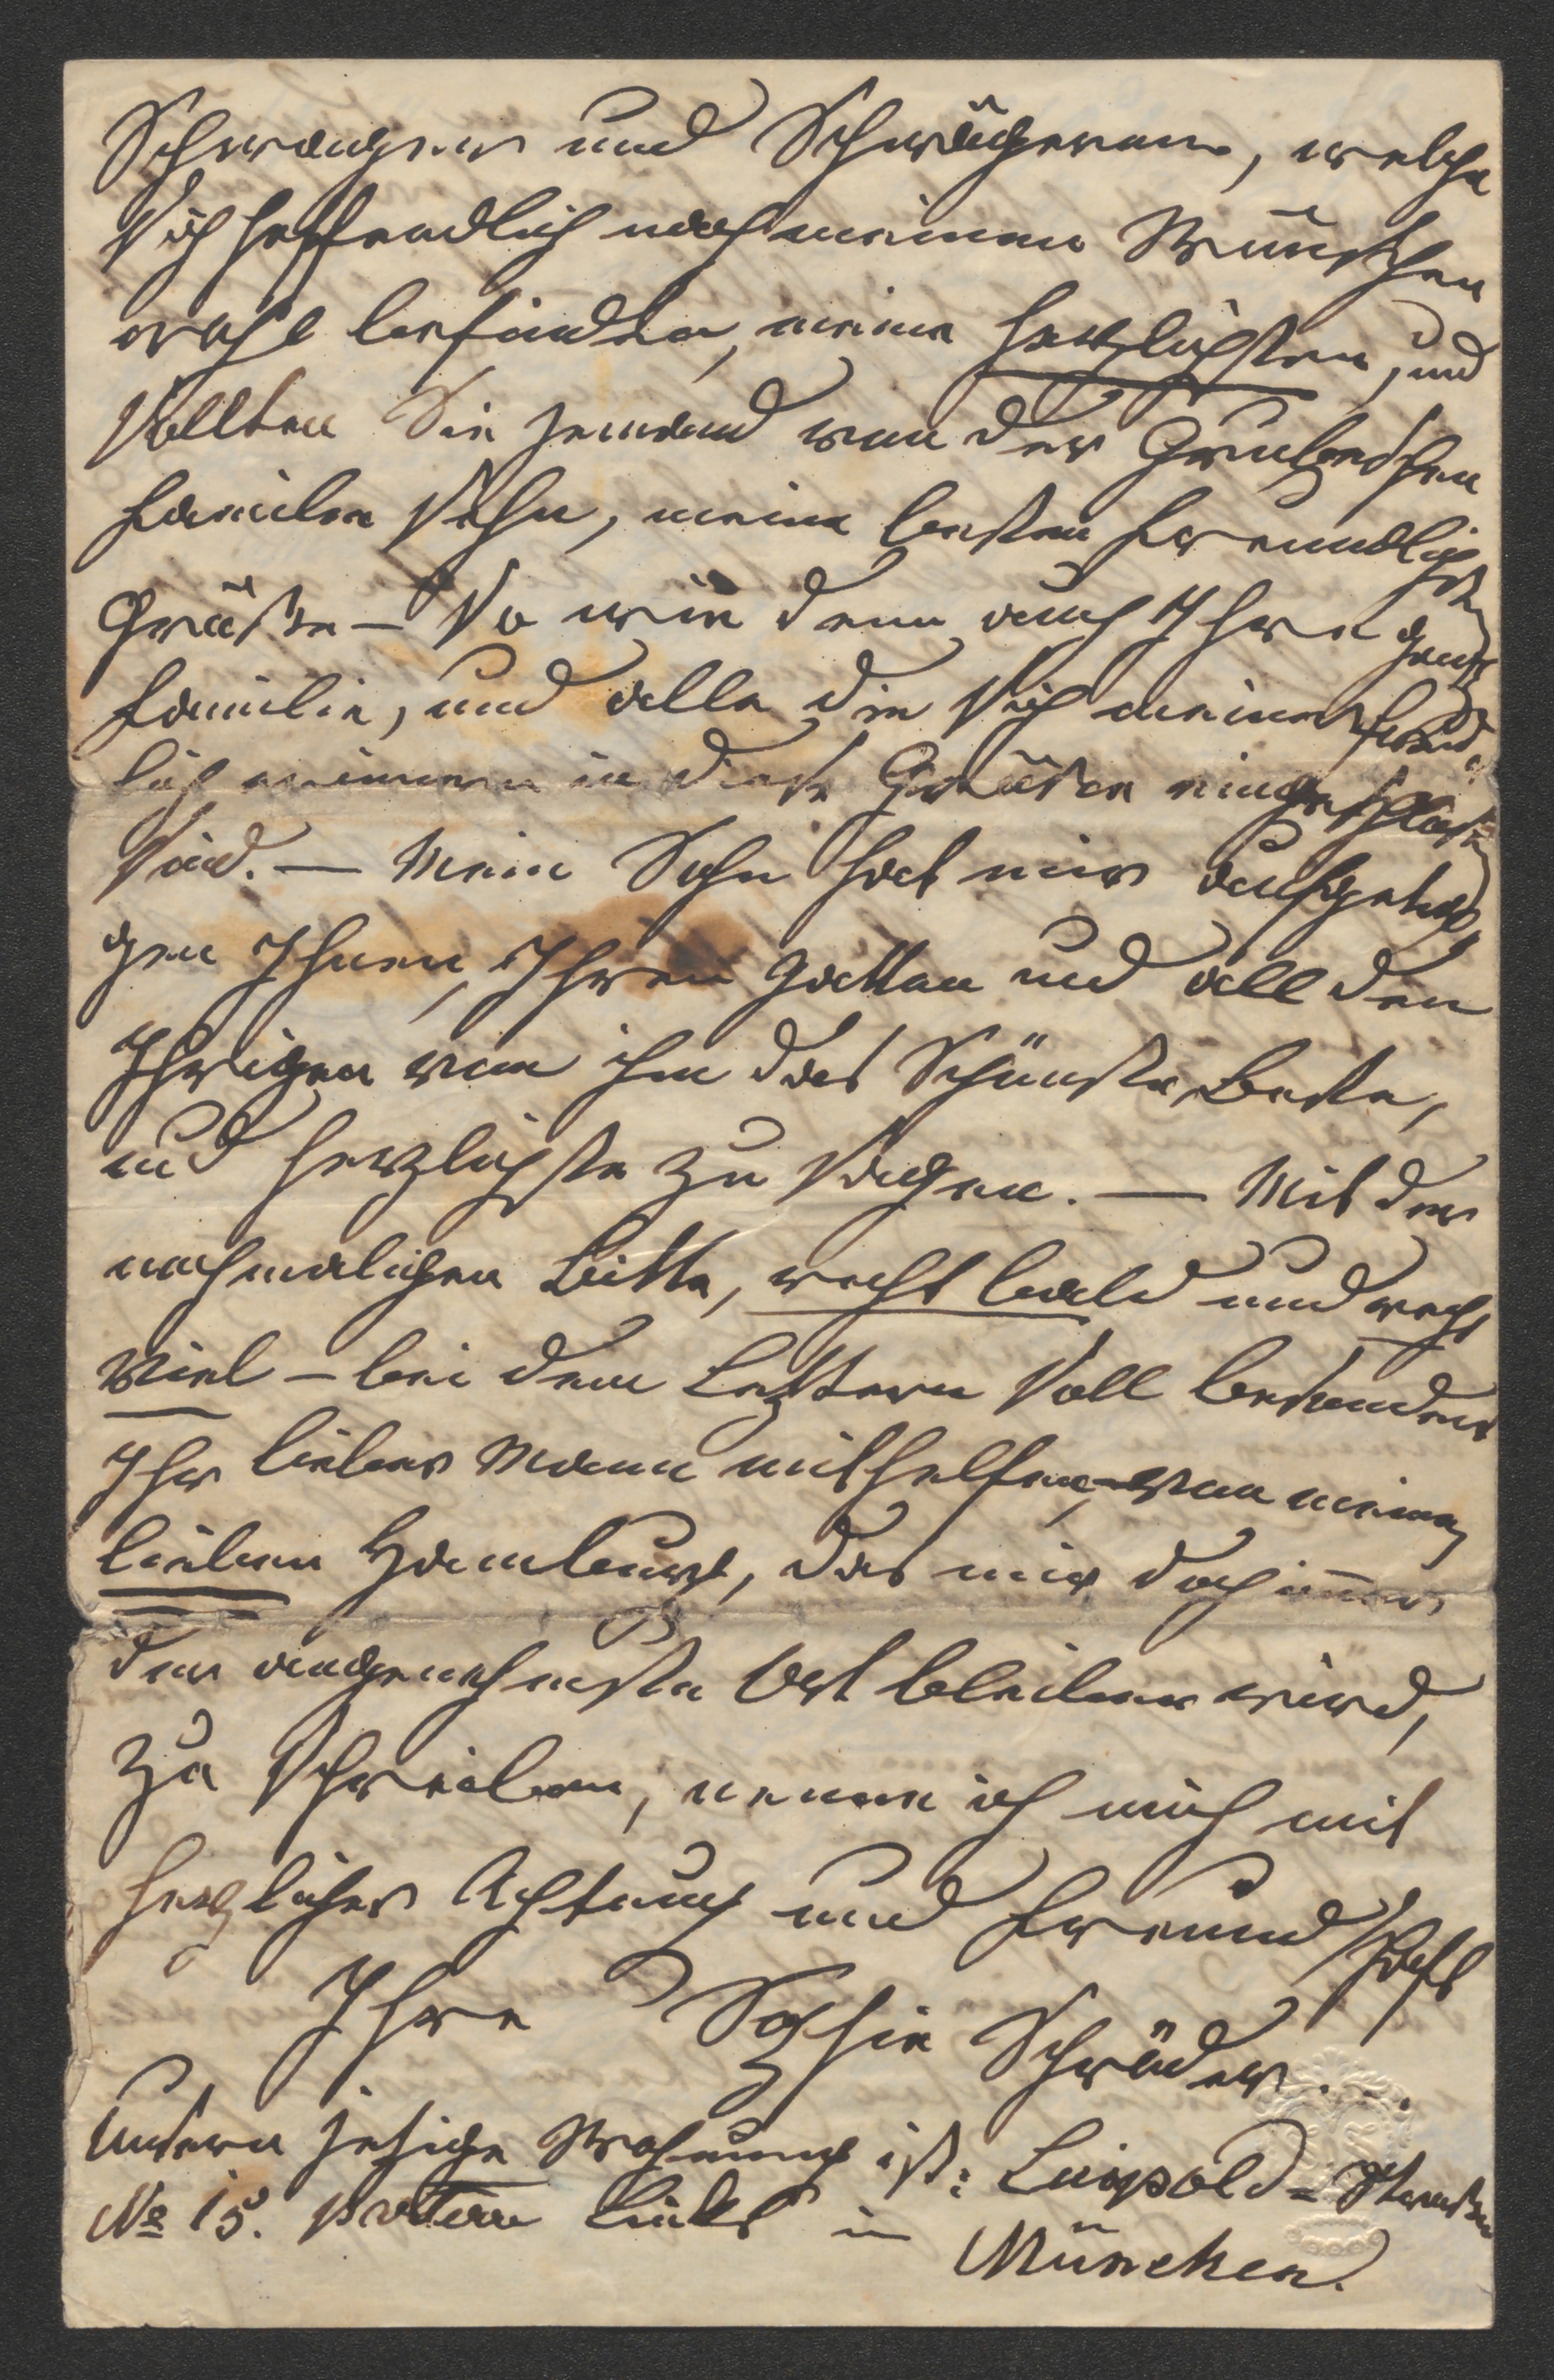 Schwager und Schwägerinn, welche
sich hoffendlich nach meinen Wünschen
wohl befinden, meine herzlichsten, und
sollten Sie jemand von der
Familie sehn, meine besten freundlichsten
Grüße – So wie denn auch Ihre ganze
Familie, und alle die sich meiner freund¬
lich erinnern in diese Grüße eingeschlossen
sind. — Mein Sohn hat mir aufgetra¬
gen Ihnen, Ihren Gatten und all den
Ihrigen von ihm das Schönste, Beste,
und herzlichste zu sagen. — Mit der
nochmaligen Bitte, recht bald und recht
viel – bei dem Leztern soll besonders
Ihr lieber Mann mithelfen, – von meinen
lieben Hamburg, das mir doch immer
der angenehmste Ort bleiben wird,
zu schreiben, nenne ich mich mit
herzlicher Achtung und Freundschaft
Ihre Sophie Schröder.
Unsere jetzige Wohnung ist: Luipold=Strasse
No 15. parterre links in
München.